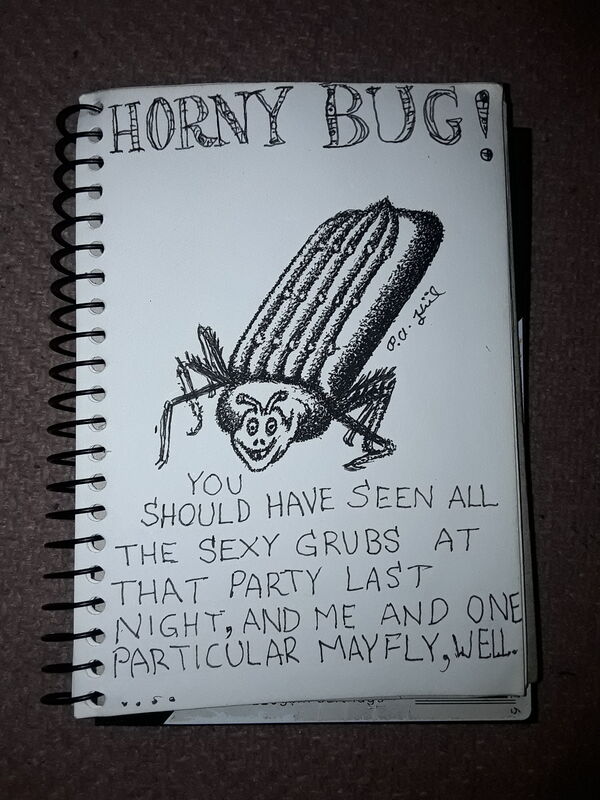 HORNY BUG!
YOU
SHOULD HAVE SEEN ALL
THE SEXY GRUBS AT
THAT PARTY LAST
NIGHT, AND ME AND ONE
PARTICULAR MAYFLY, WELL.
....